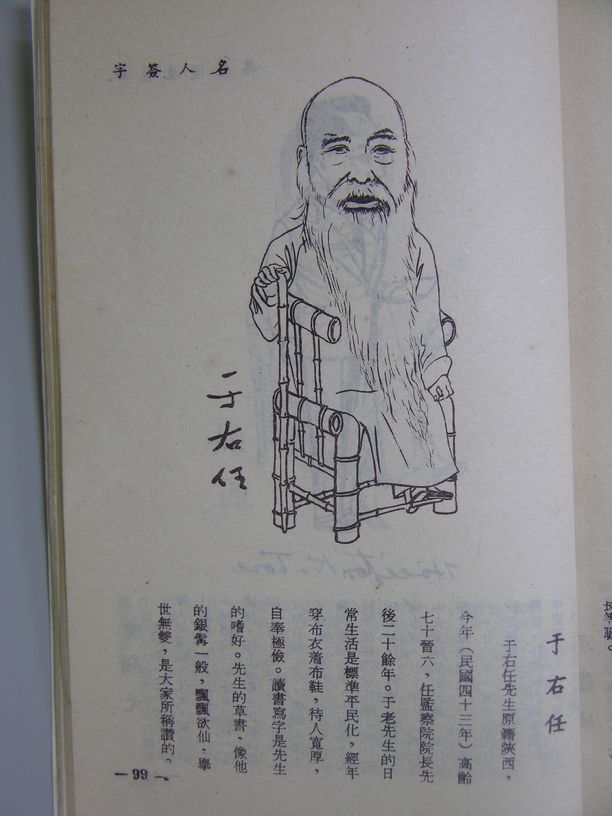 名人簽字
于右任
于右任
于右任先生原籍陝西，
今年（民國四十三年）高齡
七十晉六，任監察院院長先
後二十餘年。于老先生的日
常生活是標準平民化，經年
穿布衣着布鞋，待人寬厚，
自奉極儉。讀書寫字是先生
的嗜好。先生的草書，像他
的銀髯一般，飄飄欲仙，舉
世無雙，是大家所稱讚的。
—99—